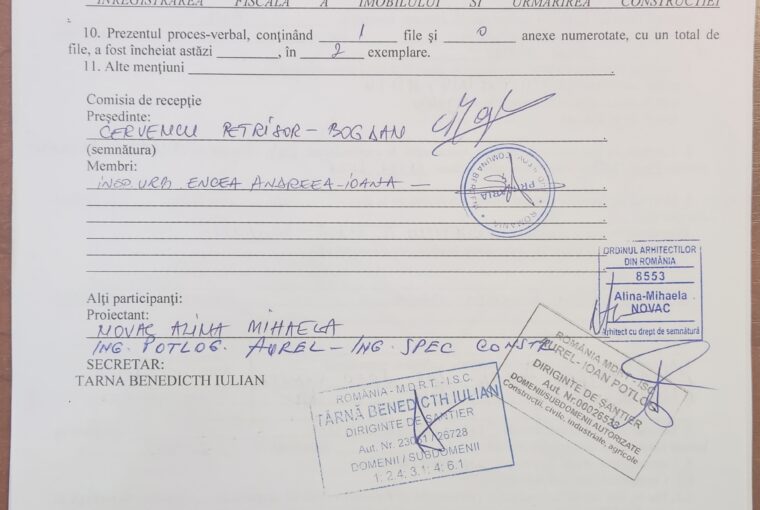 INREGISTRAREA FISCALĂ A IMOBILULUI SI URMĂRIREA CONSTRUCTIEI
10. Prezentul proces-verbal, conținând 1 file și 0 anexe numerotate, cu un total de
file, a fost încheiat astăzi ________, în 2 exemplare.
11. Alte mențiuni
Comisia de recepție
Președinte:
CERVENCU PETRISOR - BOGDAN
(semnătura)
Membri:
ENCEA ANDREEA-IOANA
ROMANIA
COMUNA
PRIMARIA
Alți participanți:
Proiectant:
NOVAC ALINA MIHAELA
ING. POTLOG. AUREL - ING. SPEC CONSTR
SECRETAR:
TARNA BENEDICTH IULIAN
ORDINUL ARHITECTILOR
DIN ROMÂNIA
8553
Alina-Mihaela
NOVAC
Arhitect cu drept de semnătură
ROMÂNIA MDRT - ISC
AUREL- IOAN POTLOG
DIRIGINTE DE SANTIER
Aut. Nr.
DOMENII/SUBDOMENII AUTORIZATE
Constructii, civile, industriale, agricole
ROMÂNIA - M.D.R.T. - I.S.C.
TÂRNĂ BENEDICTH IULIAN
DIRIGINTE DE SANTIER
Aut. Nr. /26728
DOMENII / SUBDOMENII
1; 2.4; 3.1; 4; 6.1